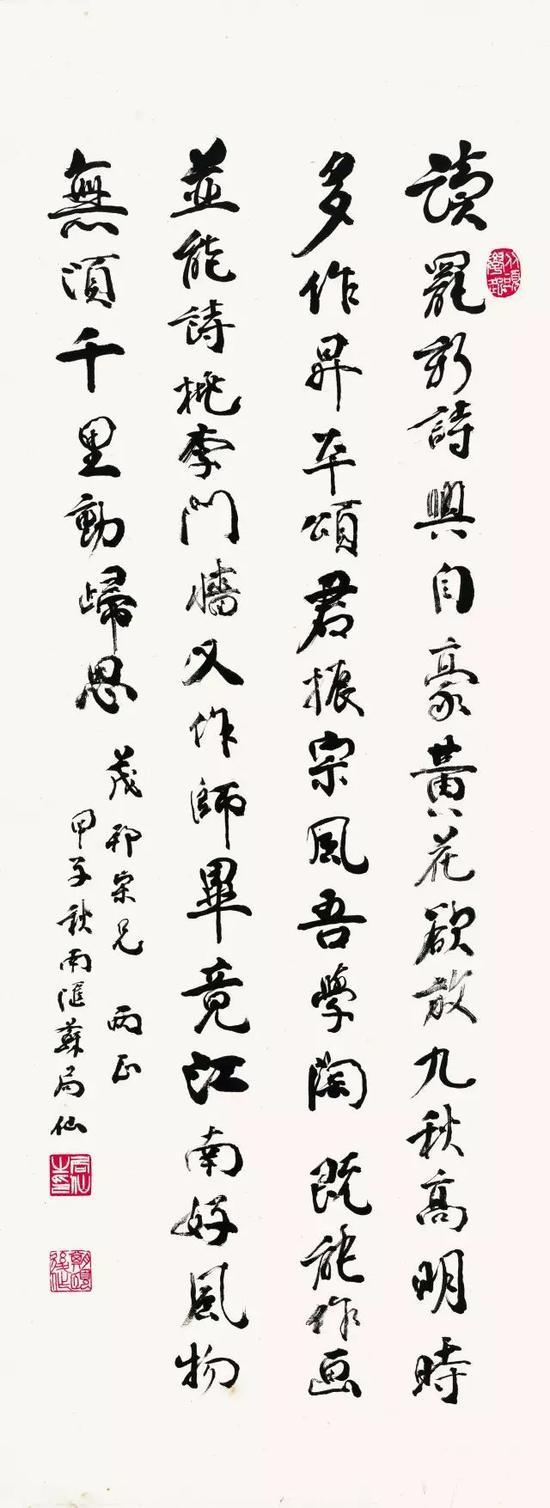 讀罷新詩興自豪黃花欲放九秋高明時
多作昇平頌君振宗風吾學陶既能作画
並能詩桃李門墻又作師畢竟江南好風物
無須千里動歸思
茂宗兄兩正
甲子秋南滙蘇局仙